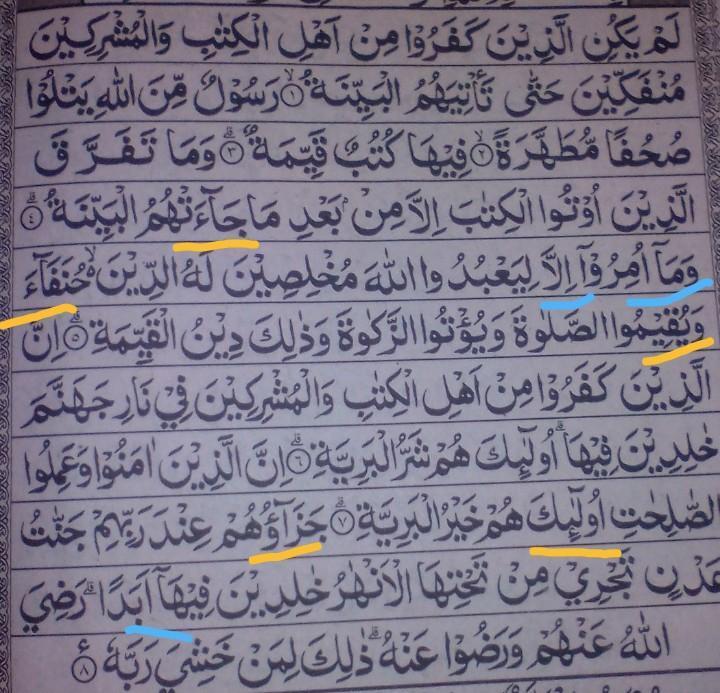 لَمْ يَكُنِ الَّذِيْنَ كَفَرُوْا مِنْ اَهْلِ الْكِتٰبِ وَالْمُشْرِكِيْنَ
مُنْفَكِّيْنَ حَتّٰى تَأْتِيَهُمُ الْبَيِّنَةُ ۙ١ رَسُوْلٌ مِّنَ اللّٰهِ يَتْلُوْا
صُحُفًا مُّطَهَّرَةً ۙ٢ فِيْهَا كُتُبٌ قَيِّمَةٌ ۗ٣ وَمَا تَفَرَّقَ
الَّذِيْنَ اُوْتُوا الْكِتٰبَ اِلَّا مِنْۢ بَعْدِ مَاجَاۤءَتْهُمُ الْبَيِّنَةُ ۗ٤
وَمَآ اُمِرُوْٓا اِلَّا لِيَعْبُدُوا اللّٰهَ مُخْلِصِيْنَ لَهُ الدِّيْنَ ەۙ حُنَفَاۤءَ
وَيُقِيْمُوا الصَّلٰوةَ وَيُؤْتُوا الزَّكٰوةَ وَذٰلِكَ دِيْنُ الْقَيِّمَةِ ۗ٥ اِنَّ
الَّذِيْنَ كَفَرُوْا مِنْ اَهْلِ الْكِتٰبِ وَالْمُشْرِكِيْنَ فِيْ نَارِ جَهَنَّمَ
خٰلِدِيْنَ فِيْهَا ۗ اُولٰۤىِٕكَ هُمْ شَرُّ الْبَرِيَّةِ ۗ٦ اِنَّ الَّذِيْنَ اٰمَنُوْا وَعَمِلُوا
الصّٰلِحٰتِ اُولٰۤىِٕكَ هُمْ خَيْرُ الْبَرِيَّةِ ۗ٧ جَزَاۤؤُهُمْ عِنْدَ رَبِّهِمْ جَنّٰتُ
عَدْنٍ تَجْرِيْ مِنْ تَحْتِهَا الْاَنْهٰرُ خٰلِدِيْنَ فِيْهَآ اَبَدًا ۗ رَضِيَ
اللّٰهُ عَنْهُمْ وَرَضُوْا عَنْهُ ۗ ذٰلِكَ لِمَنْ خَشِيَ رَبَّهٗ ࣖ٨